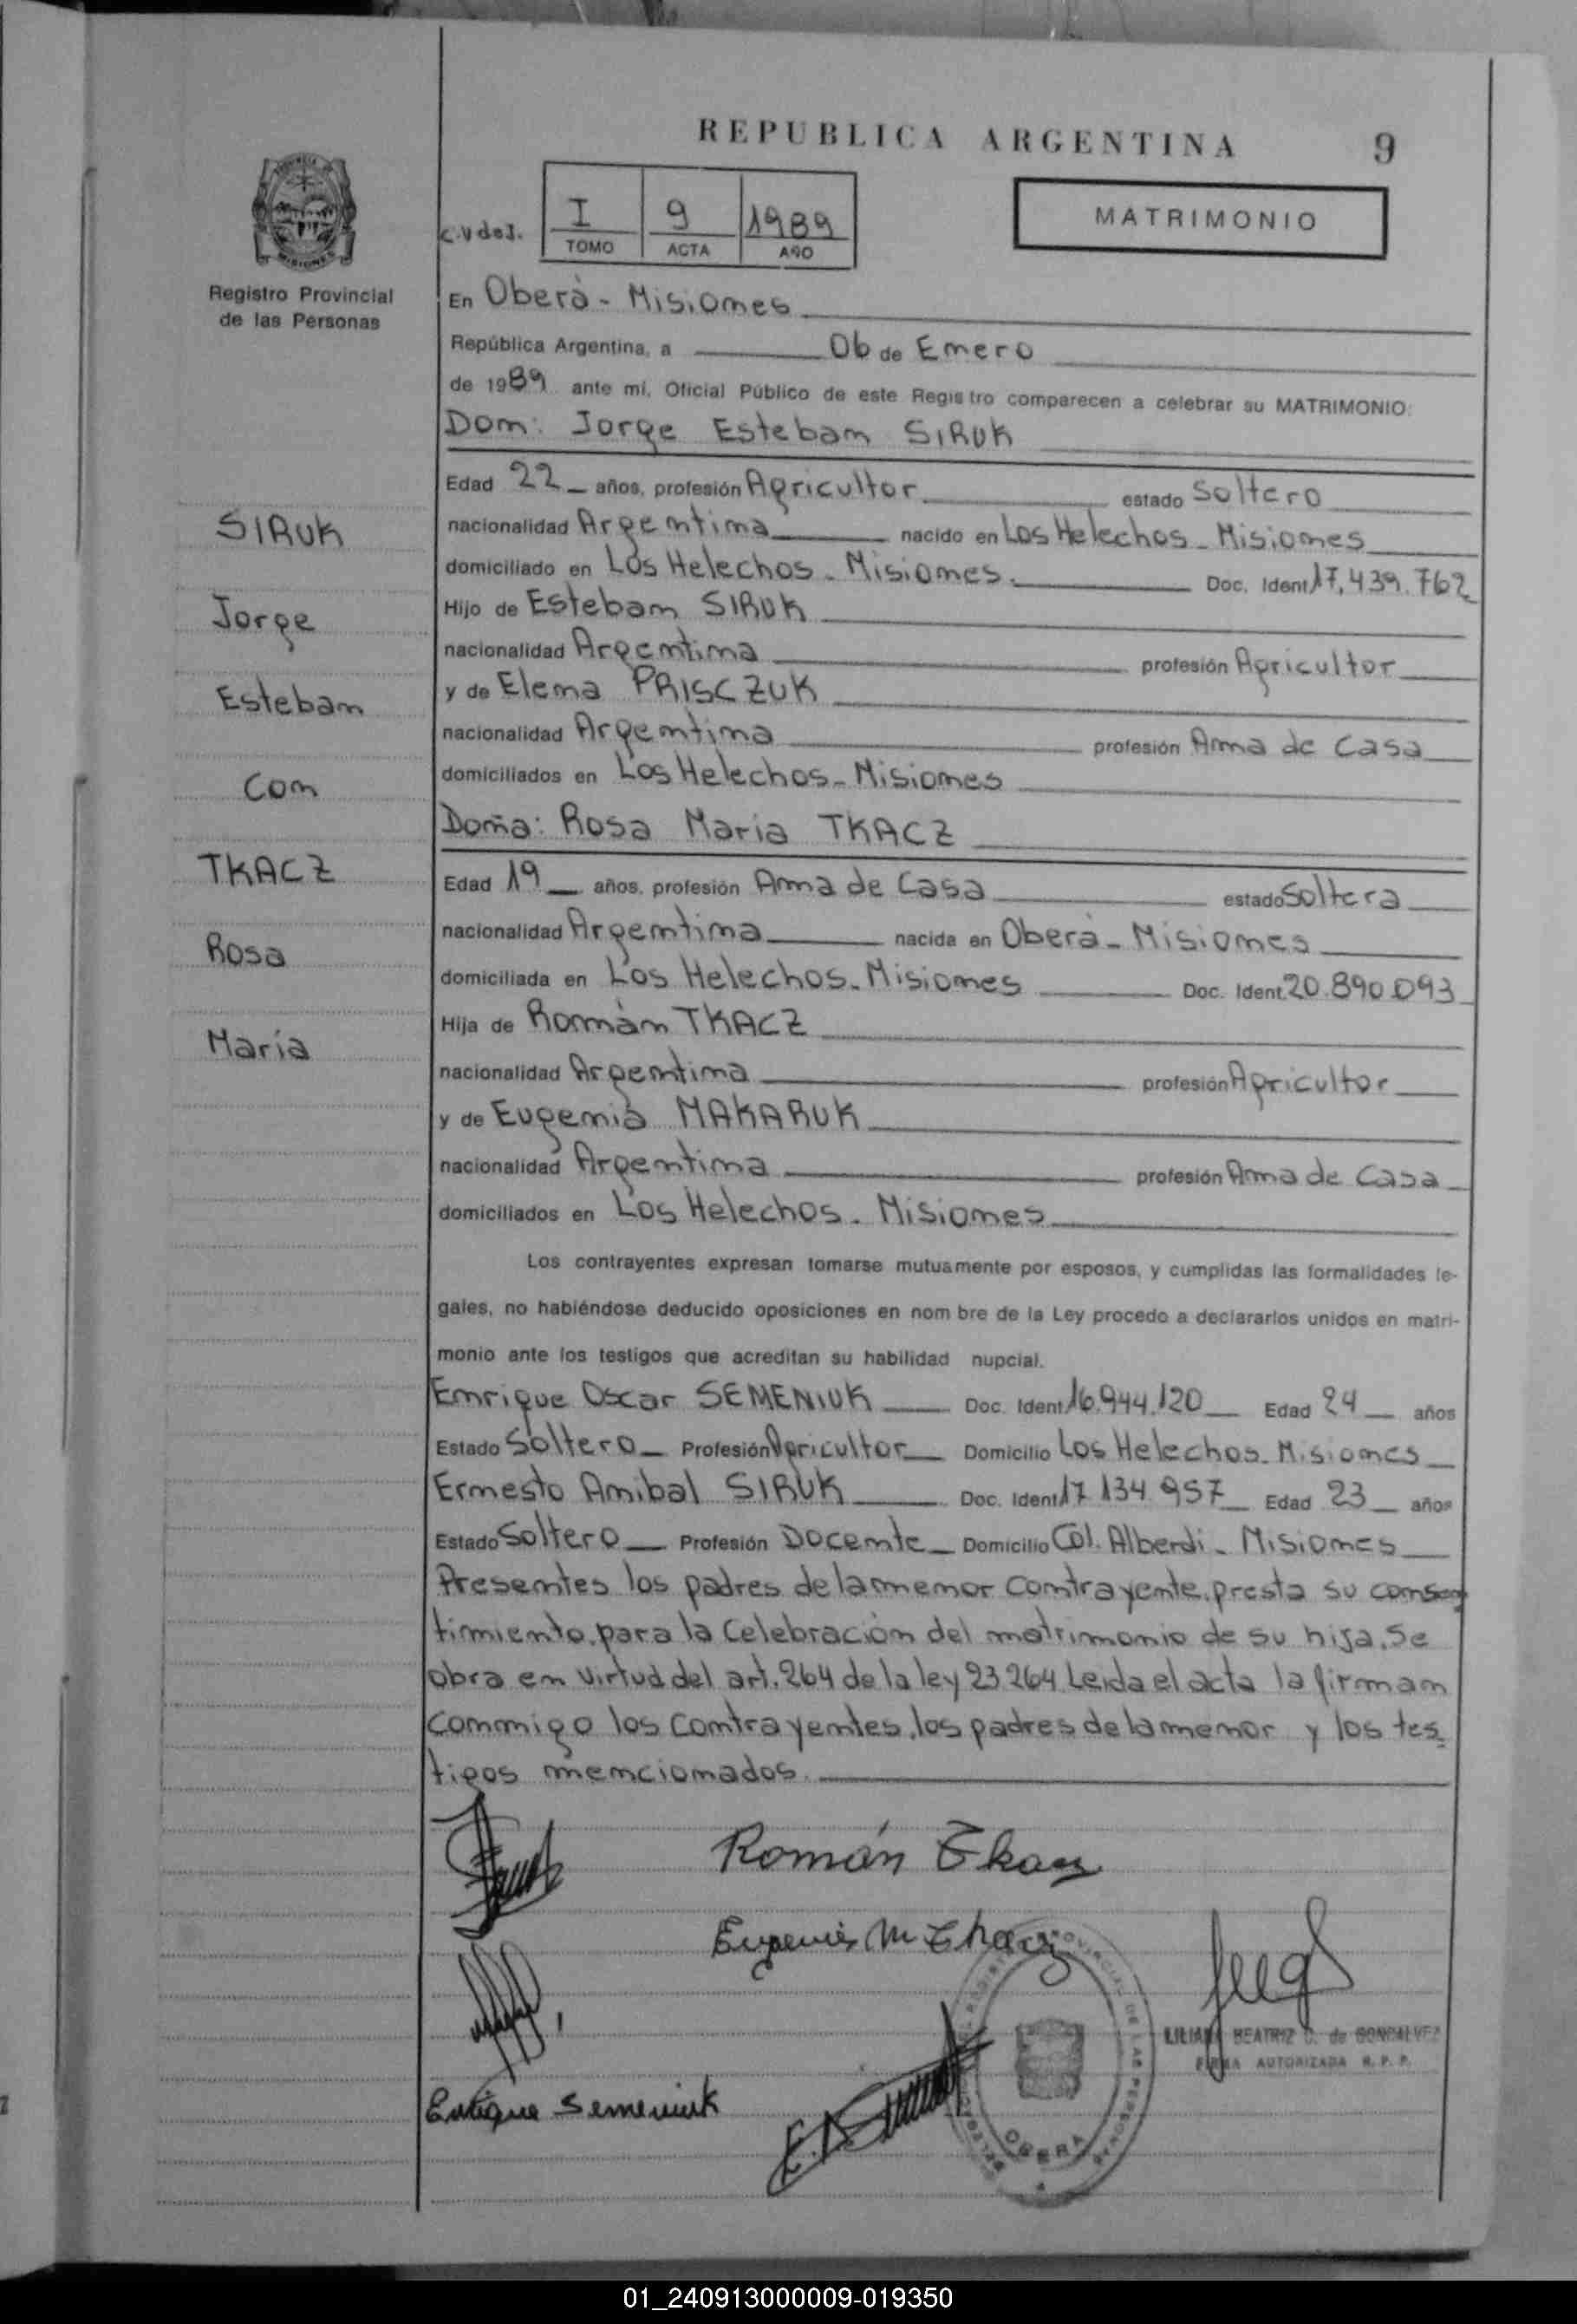 REPUBLICA ARGENTINA 9
C.V de I.
I 9 1989
TOMO ACTA AÑO
MATRIMONIO
Registro Provincial
de las Personas
En Oberá - Misiones
República Argentina, a 06 de Enero
de 1989 ante mi, Oficial Público de este Registro comparecen a celebrar su MATRIMONIO:
Don: Jorge Esteban SIRUK
Edad 22 años, profesión Agricultor estado Soltero
nacionalidad Argentina nacido en Los Helechos - Misiones
domiciliado en Los Helechos - Misiones. Doc. Ident. 17.439.762
Hijo de Esteban SIRUK
nacionalidad Argentina profesión Agricultor
y de Elena PRISCZUK
nacionalidad Argentina profesión Ama de Casa
domiciliados en Los Helechos - Misiones
Doña: Rosa María TKACZ
Edad 19 años, profesión Ama de Casa estado Soltera
nacionalidad Argentina nacida en Oberá - Misiones
domiciliada en Los Helechos - Misiones Doc. Ident. 20.890.093
Hija de Román TKACZ
nacionalidad Argentina profesión Agricultor
y de Eugenia MAKARUK
nacionalidad Argentina profesión Ama de Casa
domiciliados en Los Helechos - Misiones
SIRUK
Jorge
Esteban
Con
TKACZ
Rosa
María
Los contrayentes expresan tomarse mutuamente por esposos, y cumplidas las formalidades le-
gales, no habiéndose deducido oposiciones en nom bre de la Ley procedo a declararlos unidos en matri-
monio ante los testigos que acreditan su habilidad nupcial.
Enrique Oscar SEMENIUK Doc. Ident. 16.944.120 Edad 24 años
Estado Soltero Profesión Agricultor Domicilio Los Helechos - Misiones
Ernesto Anibal SIRUK Doc. Ident. 17.134.957 Edad 23 años
Estado Soltero Profesión Docente Domicilio Col. Alberdi - Misiones
Presentes los padres de la menor contrayente, presta su consen
timiento, para la Celebración del matrimonio de su hija. Se
obra en virtud del art. 264 de la ley 23264. Leída el acta la firman
conmigo los Contrayentes, los padres de la menor y los tes=
tigos mencionados.
Román Tkacz
Eugenia M Tkacz
LILIANA BEATRIZ C. de GONCALVEZ
FIRMA AUTORIZADA R. P. P.
Enrique Semeniuk
OBERA
01_240913000009-019350